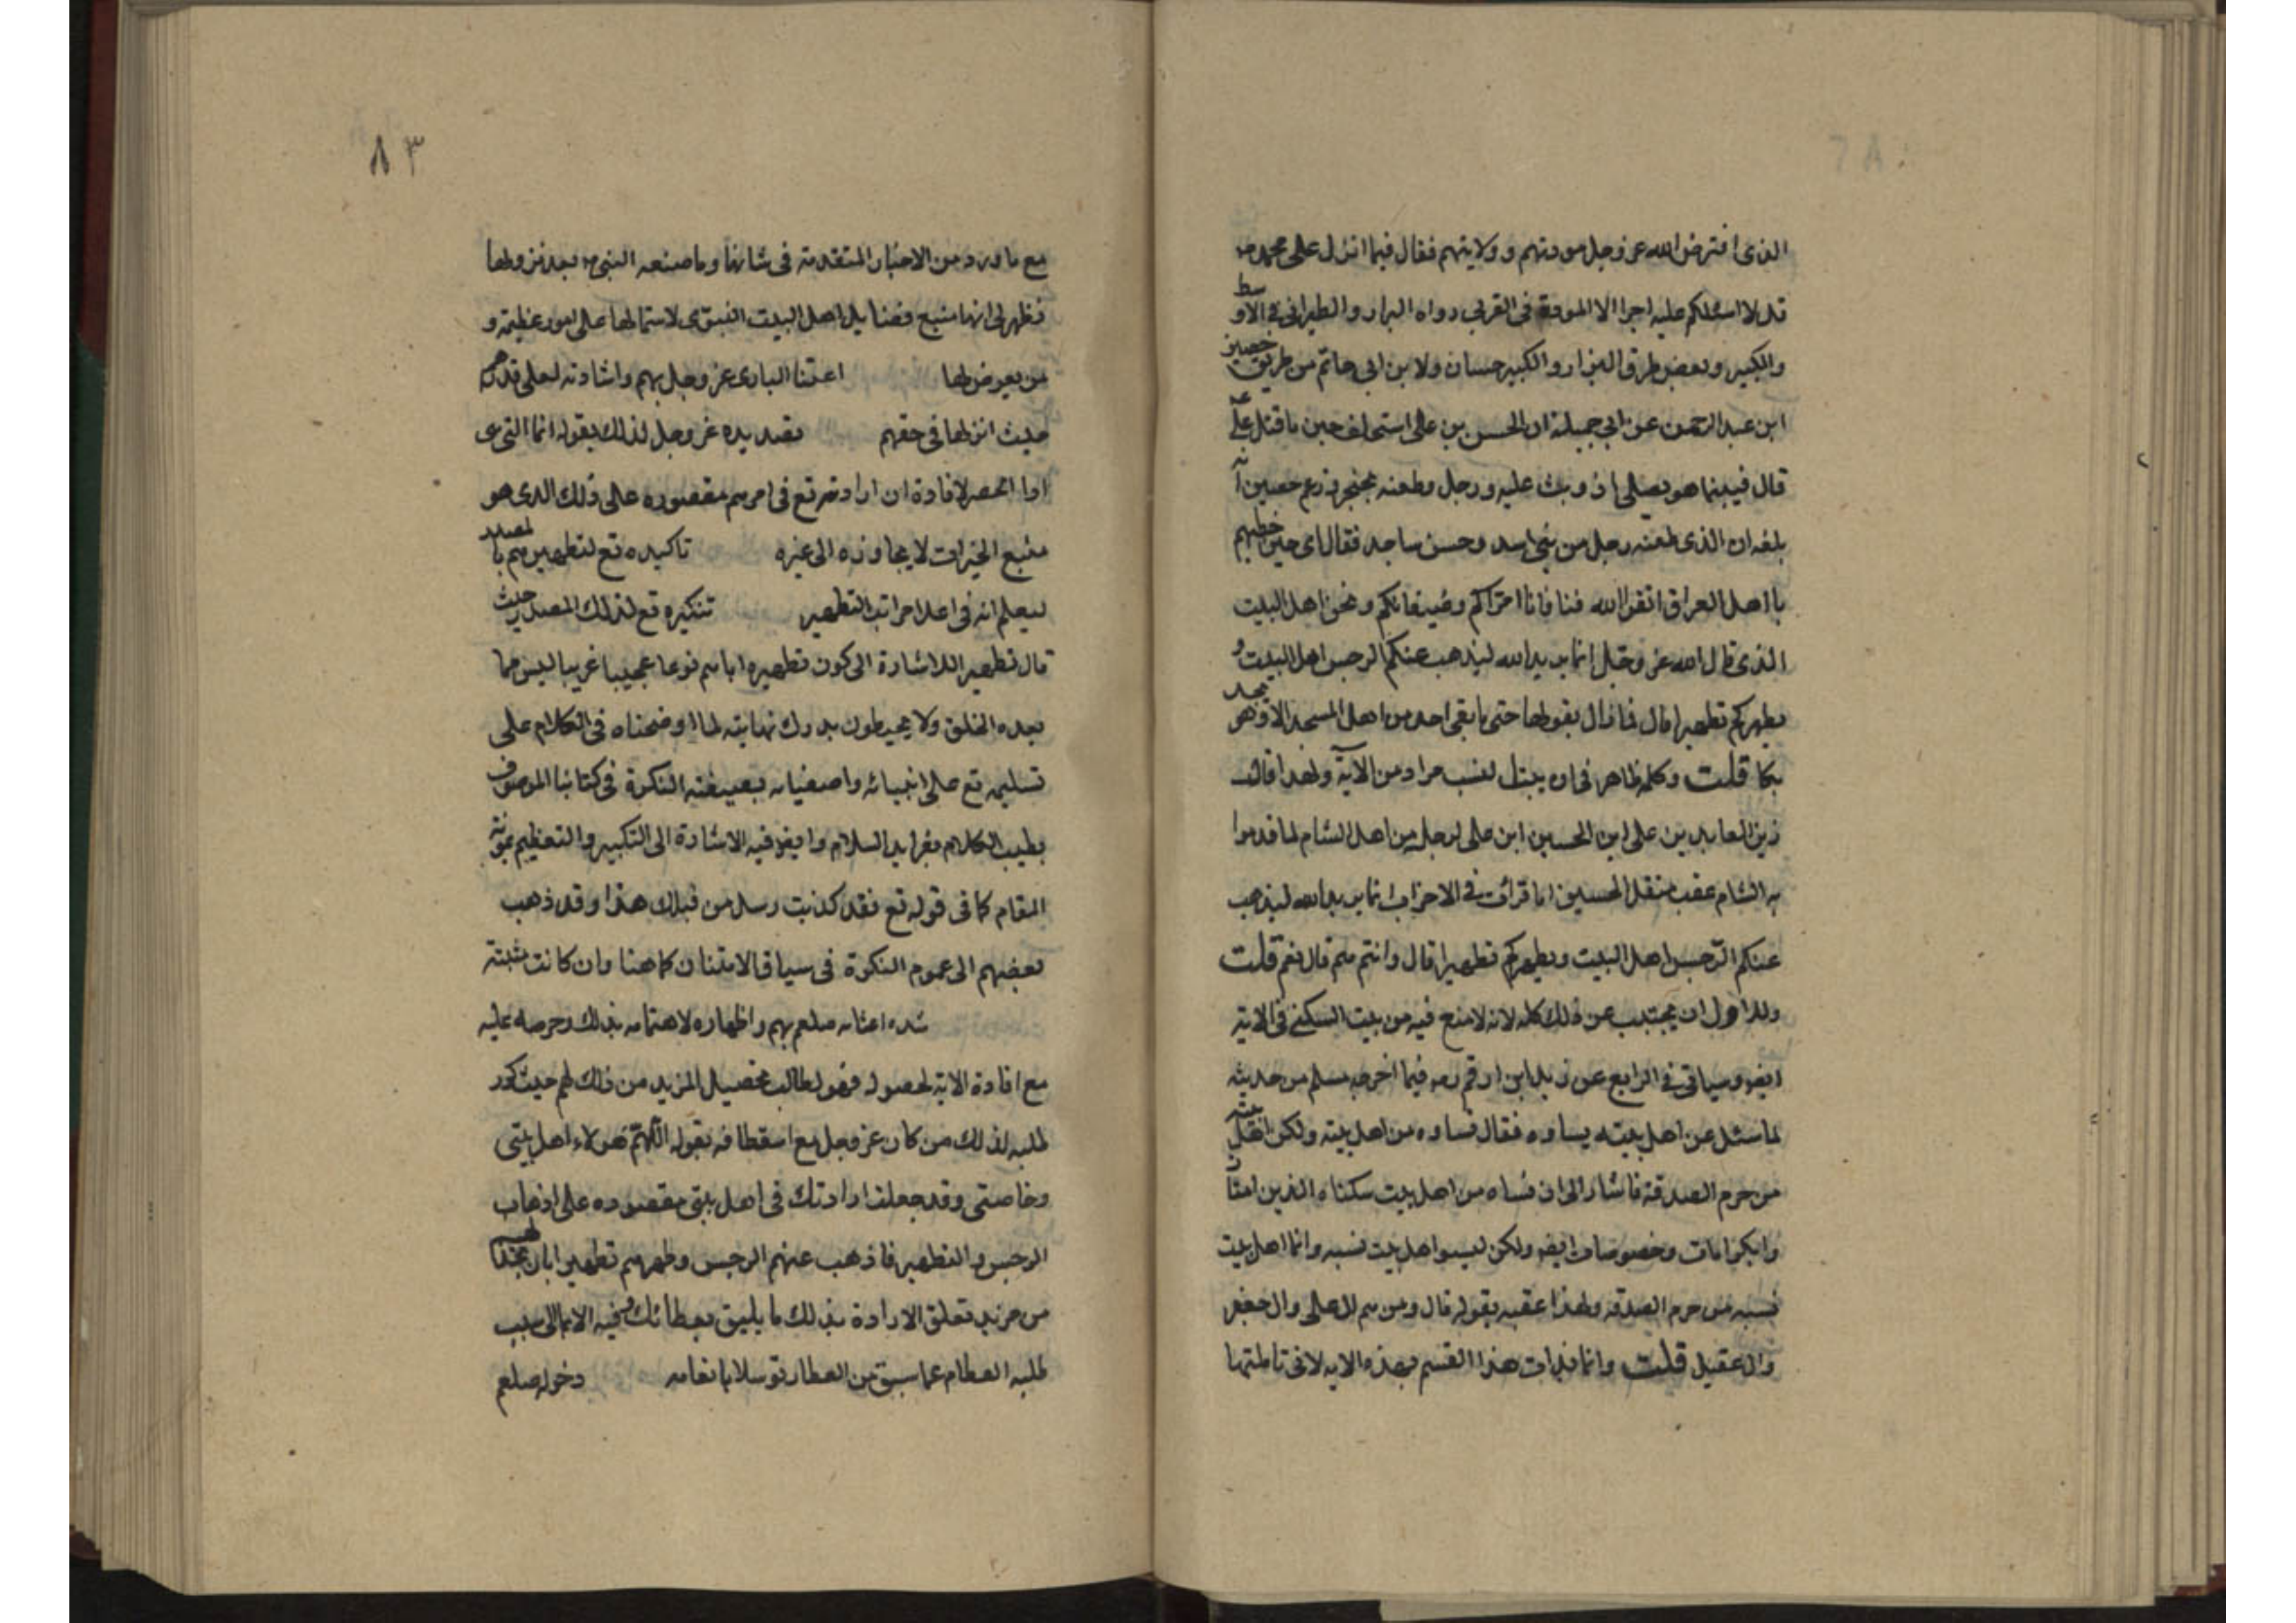 الذى افترض الله عز وجل مودتهم وولايتهم فقال فيما انزل على محمد ص
قل لا اسئلكم عليه اجرا الا المودة فى القربى رواه البزار والطبرانى فى الاوسط
والكبير وبعض طرق البزار والكبير حسان ولابن ابى حاتم من طريق حصين
ابن عبد الرحمن عن ابى جميلة ان الحسن بن على استخلف حين ما قتل على
قال فبينما هو يصلى اذ وثب عليه رجل وطعنه بخنجر زعم حصين انه
بلغه ان الذى طعنه رجل من بنى اسد وحسن ساجد فقال اى حين خطبهم
يا اهل العراق اتقوا الله فينا فانا امراكم وضيفانكم ونحن اهل البيت
الذى قال الله عز وجل انما يريد الله ليذهب عنكم الرجس اهل البيت و
يطهركم تطهيرا قال فما زال يقولها حتى ما بقى احد من اهل المسجد الا وهو يجد
بكا قلت وكله ظاهر فى ان بيت النسب مراد من الآية ولهذا قال
زين العابدين على ابن الحسين ابن على لرجل من اهل الشام لما قدموا
به الشام عقب مقتل الحسين اما قرأت فى الاحزاب انما يريد الله ليذهب
عنكم الرجس اهل البيت ويطهركم تطهيرا قال وانتم هم قال نعم قلت
وللاول ان يجتنب عن ذلك كله لانه لا منع فيه من بيت السكنى فى الاية
ايضا وسياتى فى الرابع عن زيد ابن ارقم رض فيما اخرجه مسلم من حديثه
لما سئل عن اهل بيته نساوه فقال نساوه من اهل بيته ولكن اهل بيته
من حرم الصدقة فاشار الى ان نساه من اهل بيت سكناه الذين امتاز
وا بكرامات وخصوصات ايضا ولكن ليسوا اهل بيت نسبه وانما اهل بيت
نسبه من حرم الصدقة ولهذا عقبه بقوله قال ومن هم ال على وال جعفر
وال عقيل قلت وانما بدات هذا القسم بهذه الايه لانى تاملتها
٨٣
مع ما ورد من الاخبار المتقدمة فى شانها وما صنعه النبى ص بعد نزولها
فظهر لى انها منبع فضايل اهل البيت النبوى لاشتمالها على امور عظيمة و
من يعرض لها اعتنا البارى عز وجل بهم واشادته لعلى قدرهم
حيث انزلها فى حقهم تصديره عز وجل لذلك بقوله انما التى هى
ادا الحصر لافادة ان ارادته تع فى امرهم مقصوره على ذلك الذى هو
منبع الخيرات لا يتجاوزه الى غيره تاكيده تع لتطهيرهم بالمصدر
ليعلم انه فى اعلا مراتب التطهير تنكيره تع لذلك المصدر حيث
قال تطهيرا للاشارة الى كون تطهيره اياهم نوعا عجيبا غريبا ليس مما
يعده الخلق ولا يحيطون بدرك نهايته لما اوضحناه فى الكلام على
تسليمه تع على انبيائه واصفيائه بصيغة النكرة فى كتابنا الموصوف
بطيب الكلام بفوايد السلام وايضا فيه الاشارة الى التكبير والتعظيم بمعونة
المقام كما فى قوله تع فقد كذبت رسل من قبلك هذا وقد ذهب
بعضهم الى عموم النكرة فى سياق الامتنان كما هنا وان كانت مثبتة
شده اعتنائه صلعم بهم واظهاره لاهتمامه بذلك وحرصه عليه
مع افادة الاية لحصوله فهو لطالب تحصيل المزيد من ذلك لهم حيث كرر
طلبه لذلك من كان عز وجل مع استعطافه بقوله اللهم هولاء اهل بيتى
وخاصتى وقد جعلت ارادتك فى اهل بيتى مقصوده على اذهاب
الرجس والتطهير فاذهب عنهم الرجس وطهرهم تطهيرا بان تجدد لهم
من مزيد تعلق الارادة بذلك ما يليق بعطائك وفيه الايما الى سبب
طلبه العطام عما سبق من العطا توسلا بانعامه دخوله صلعم